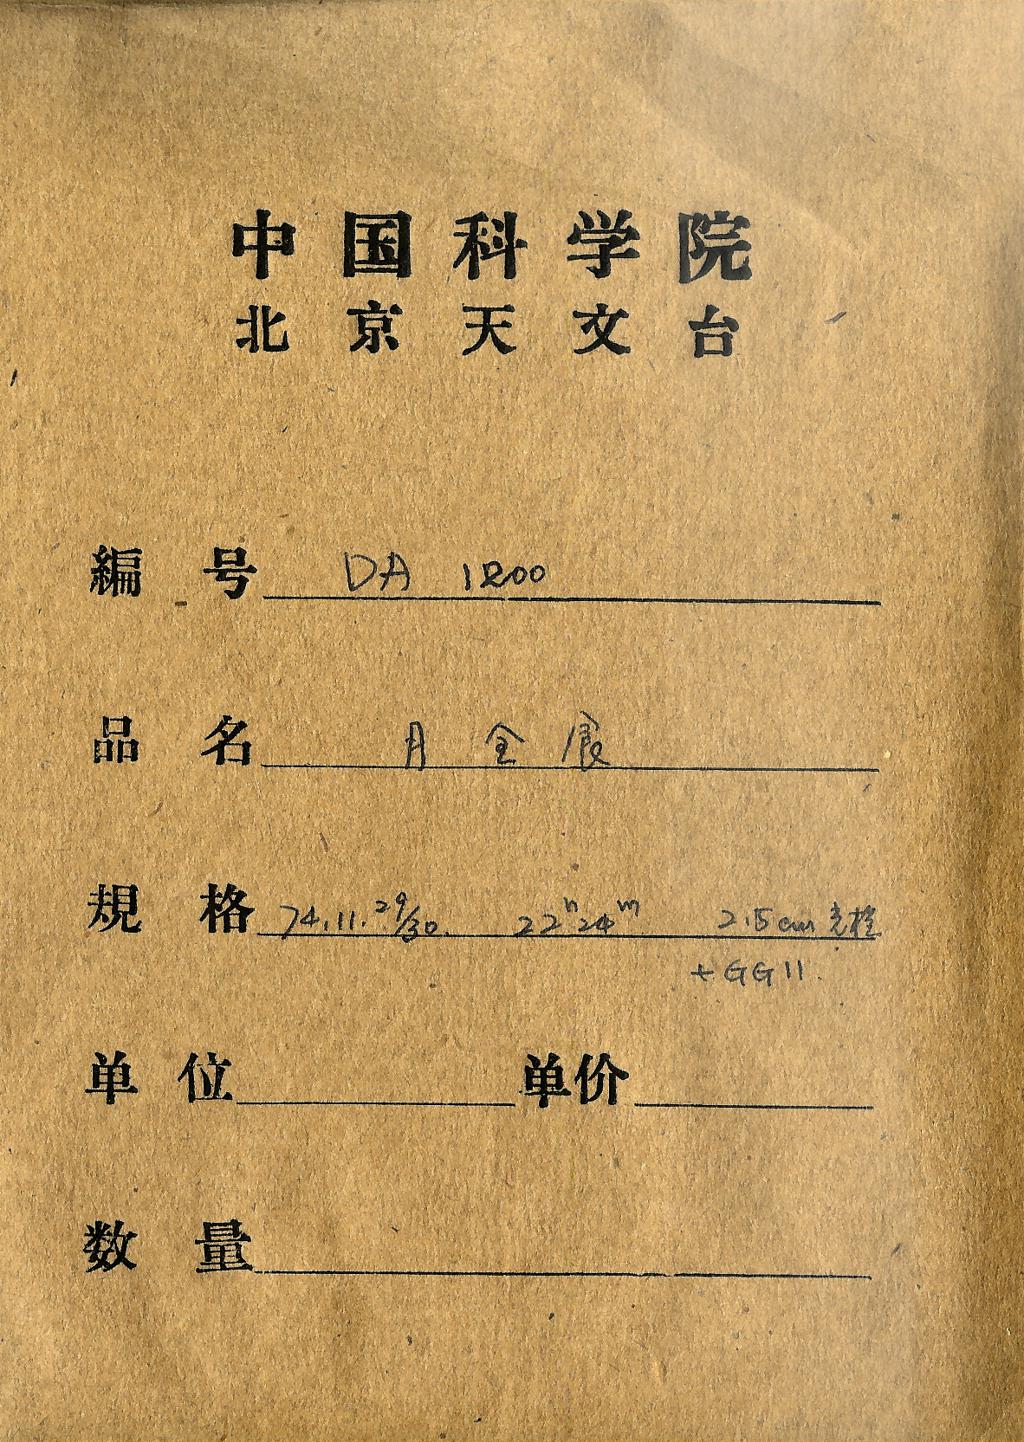 中国科学院
北京天文台
編号 DA 1200
品名 月全
規格 74.11.29/30. 22ʰ24ᵐ 2.5cm
+GG11.
单位 单价
数量